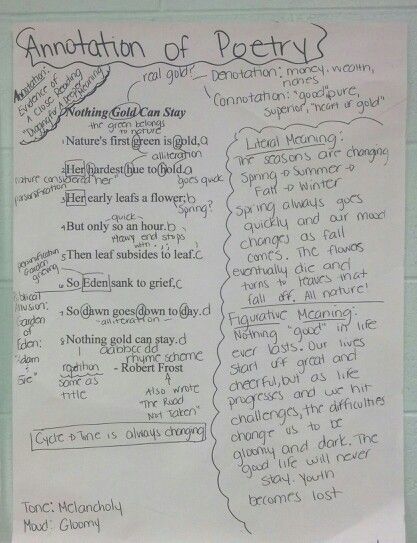 Annotation of Poetry
Annotation:
Evidence of
A Close Reading
"Digging for deeper meaning"
real gold?
Denotation: money, wealth,
riches
Connotation: "good", pure,
superior, "heart of gold"
Nothing Gold Can Stay
the green belongs
to nature
1 Nature's first green is gold, a
alliteration
nature considered "her"
personification
2 Her hardest hue to hold. a
goes quick
3 Her early leafs a flower; b
Spring?
quick
4 But only so an hour. b
Heavy end stops
with . ; ,
5 Then leaf subsides to leaf. c
personification
Garden
grieving
6 So Eden sank to grief, c
Biblical
Allusion:
Garden
of
Eden:
"Adam
7 So dawn goes down to day. d
alliteration
8 Nothing gold can stay. d
aabbccdd
rhyme scheme
- Robert Frost
repetition
same as
title
Also wrote
"The Road
Not Taken"
Cycle → Time is always changing
Tone: Melancholy
Mood: Gloomy
Literal Meaning:
The seasons are changing
Spring → Summer →
Fall → Winter
Spring always goes
quickly and our mood
changes as fall
comes. The flowers
eventually die and
turns to leaves that
fall off. All nature!
Figurative Meaning:
Nothing "good" in life
ever lasts. Our lives
start off great and
cheerful, but as life
progresses and we hit
challenges, the difficulties
change us to be
gloomy and dark. The
good life will never
stay. Youth
becomes lost